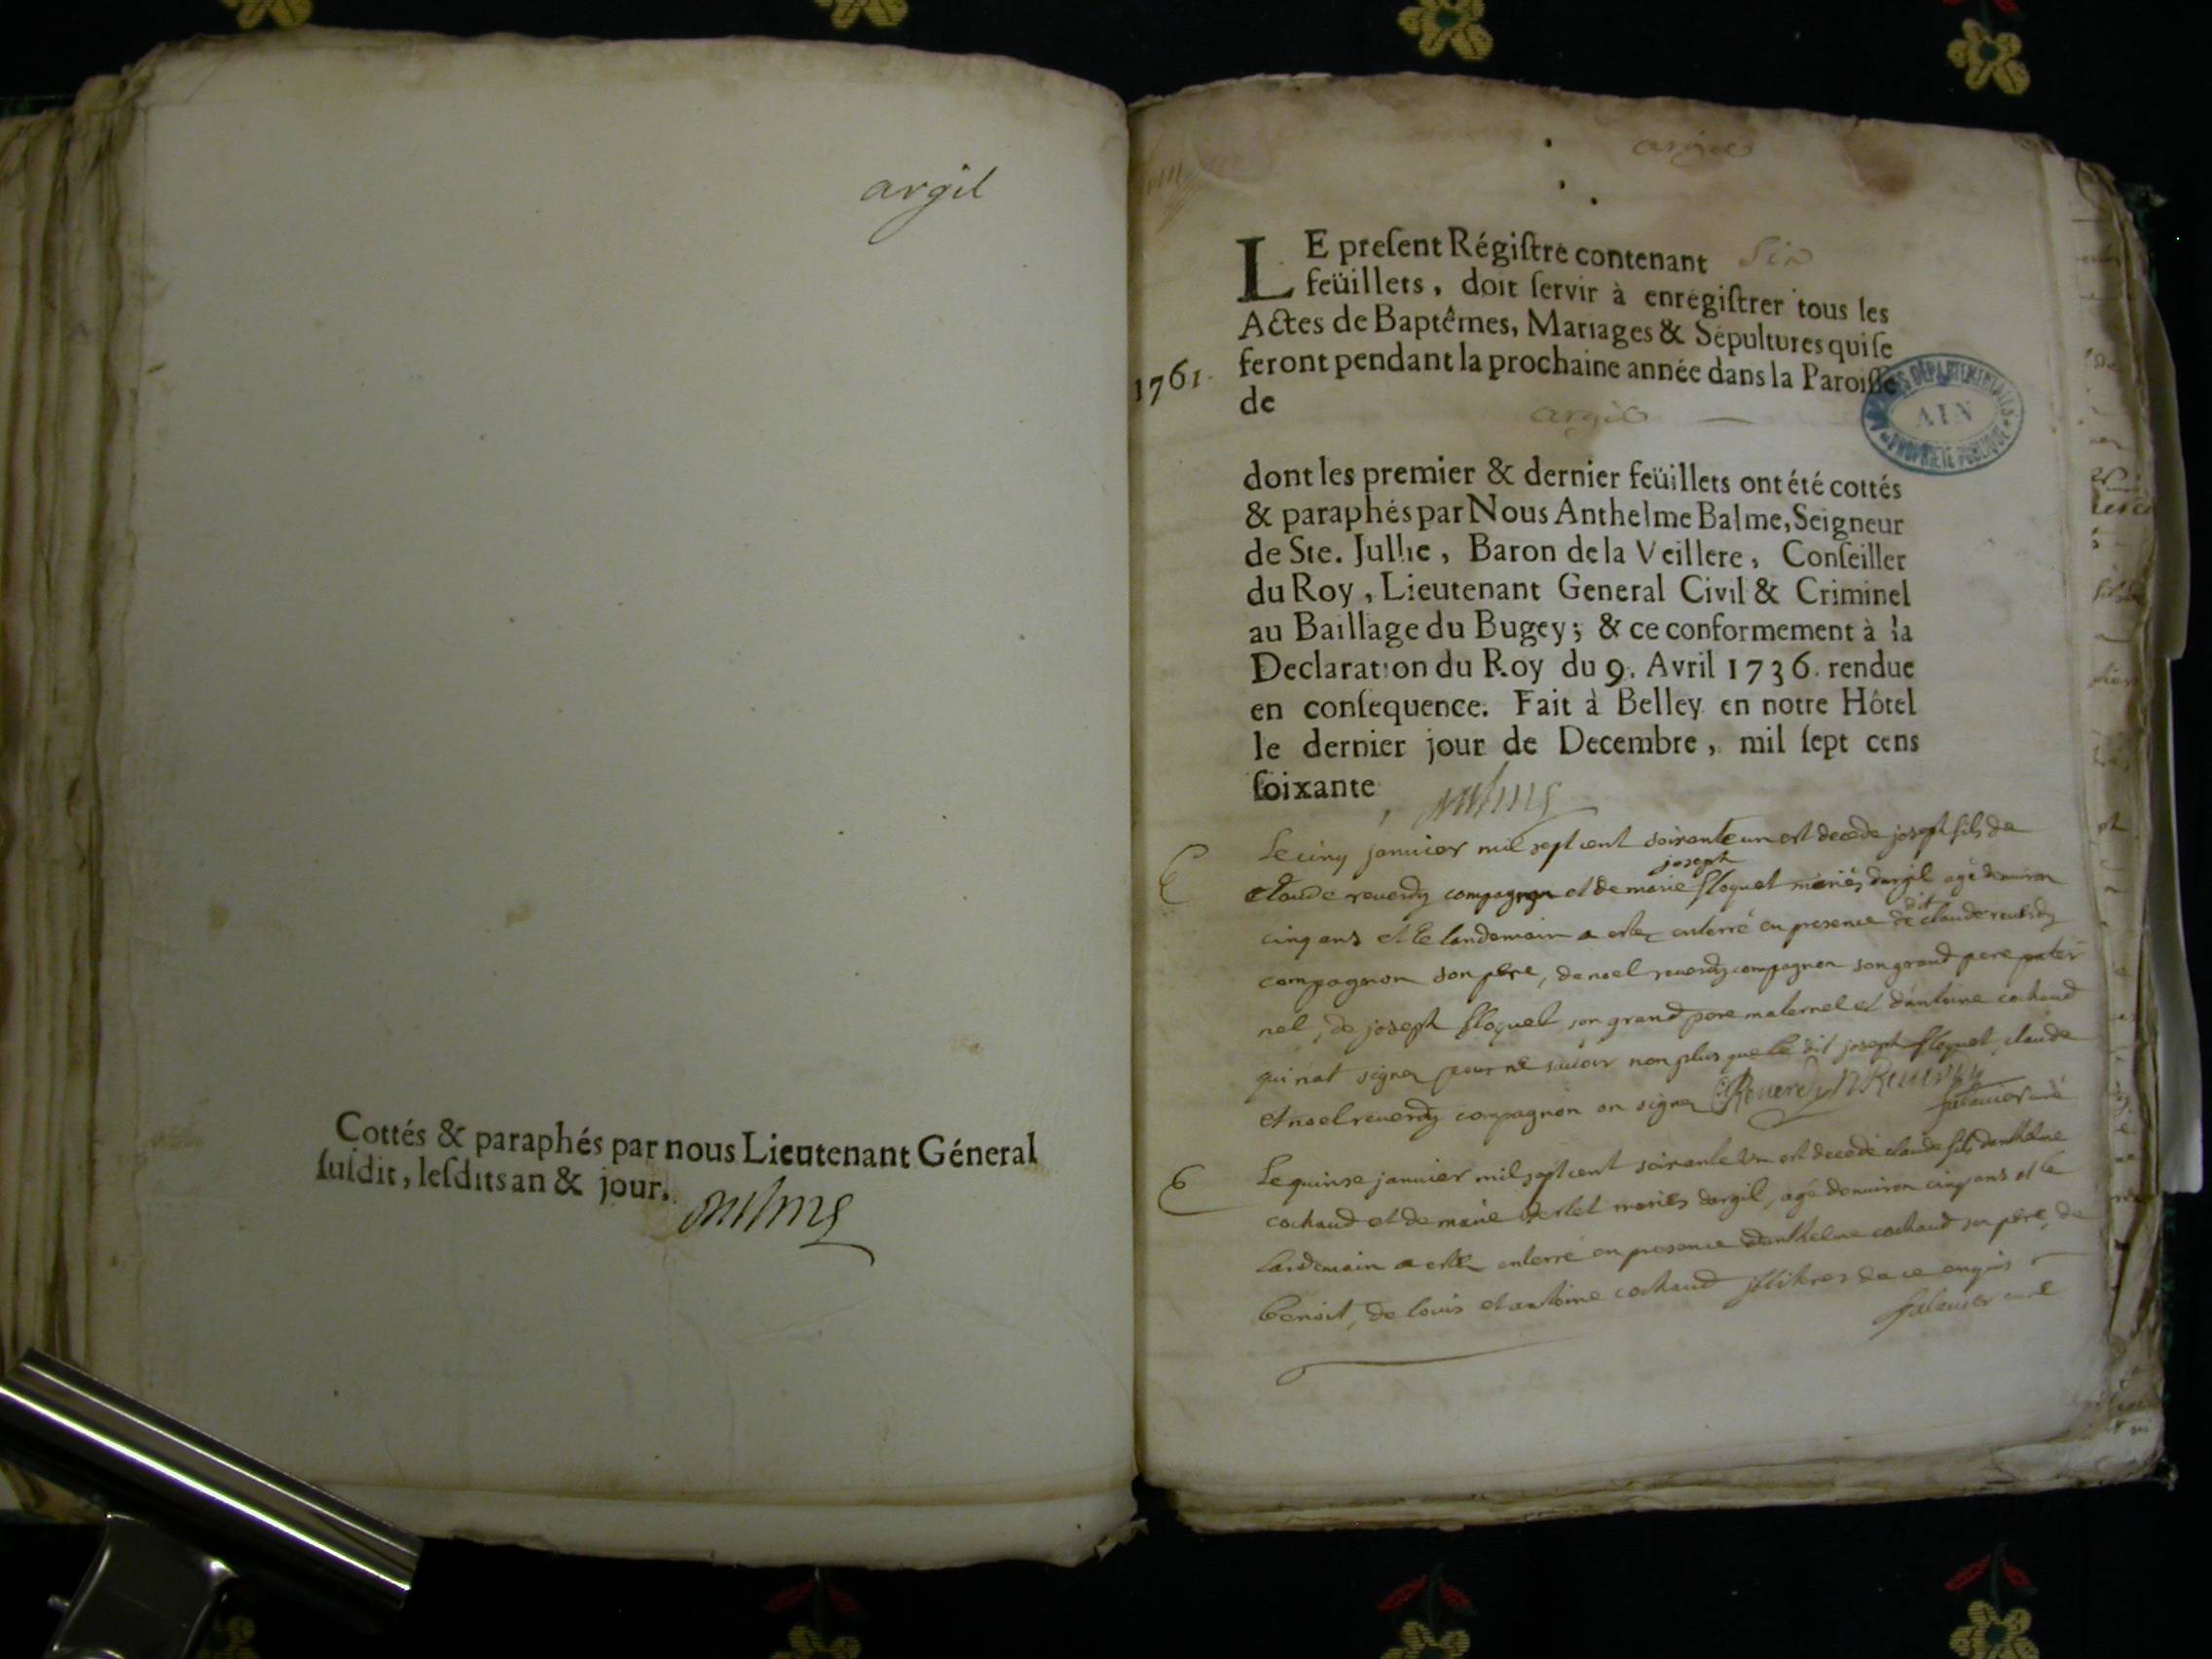 argil
Cottés & paraphés par nous Lieutenant Géneral
suſdit, leſdits an & jour.
argil
LE preſent Régiſtre contenant Six
feüillets, doit ſervir à enrégiſtrer tous les
Actes de Baptêmes, Mariages & Sépultures qui ſe
feront pendant la prochaine année dans la Paroiſſe
1761.
de argil
ARCHIVES DÉPARTEMENTALES
AIN
PROPRIÉTÉ PUBLIQUE
dont les premier & dernier feüillets ont été cottés
& paraphés par Nous Anthelme Balme, Seigneur
de Ste. Jullie, Baron de la Veillere, Conſeiller
du Roy, Lieutenant General Civil & Criminel
au Baillage du Bugey; & ce conformement à la
Declaration du Roy du 9. Avril 1736. rendue
en conſequence. Fait à Belley en notre Hôtel
le dernier jour de Decembre, mil ſept cens
ſoixante
Le cinq janvier mil sept cent soixante un est decede joseph fils de
joseph
claude reverdy compagnon et de marie floquet mariés dargil agé denviron
cinq ans et le landemain a esté enterré en presence dudit claude reverdy
compagnon son pere, de noel reverdy compagnon son grand pere pater
nel, de joseph floquet son grand pere maternel et d'antoine cochaud
qui n'at signer pour ne savoir non plus que le dit joseph floquet, claude
et noel reverdy compagnon on signer C Reverdy N Reverdy
curé
Le quinse janvier mil sept cent soixante un est decedé claude fils danthelme
cochaud et de marie mariés dargil, agé denviron cinq ans et le
landemain a esté enterré en presence danthelme cochaud son pere, de
benoit, de louis et antoine cochaud illiteres de ce enquis
curé